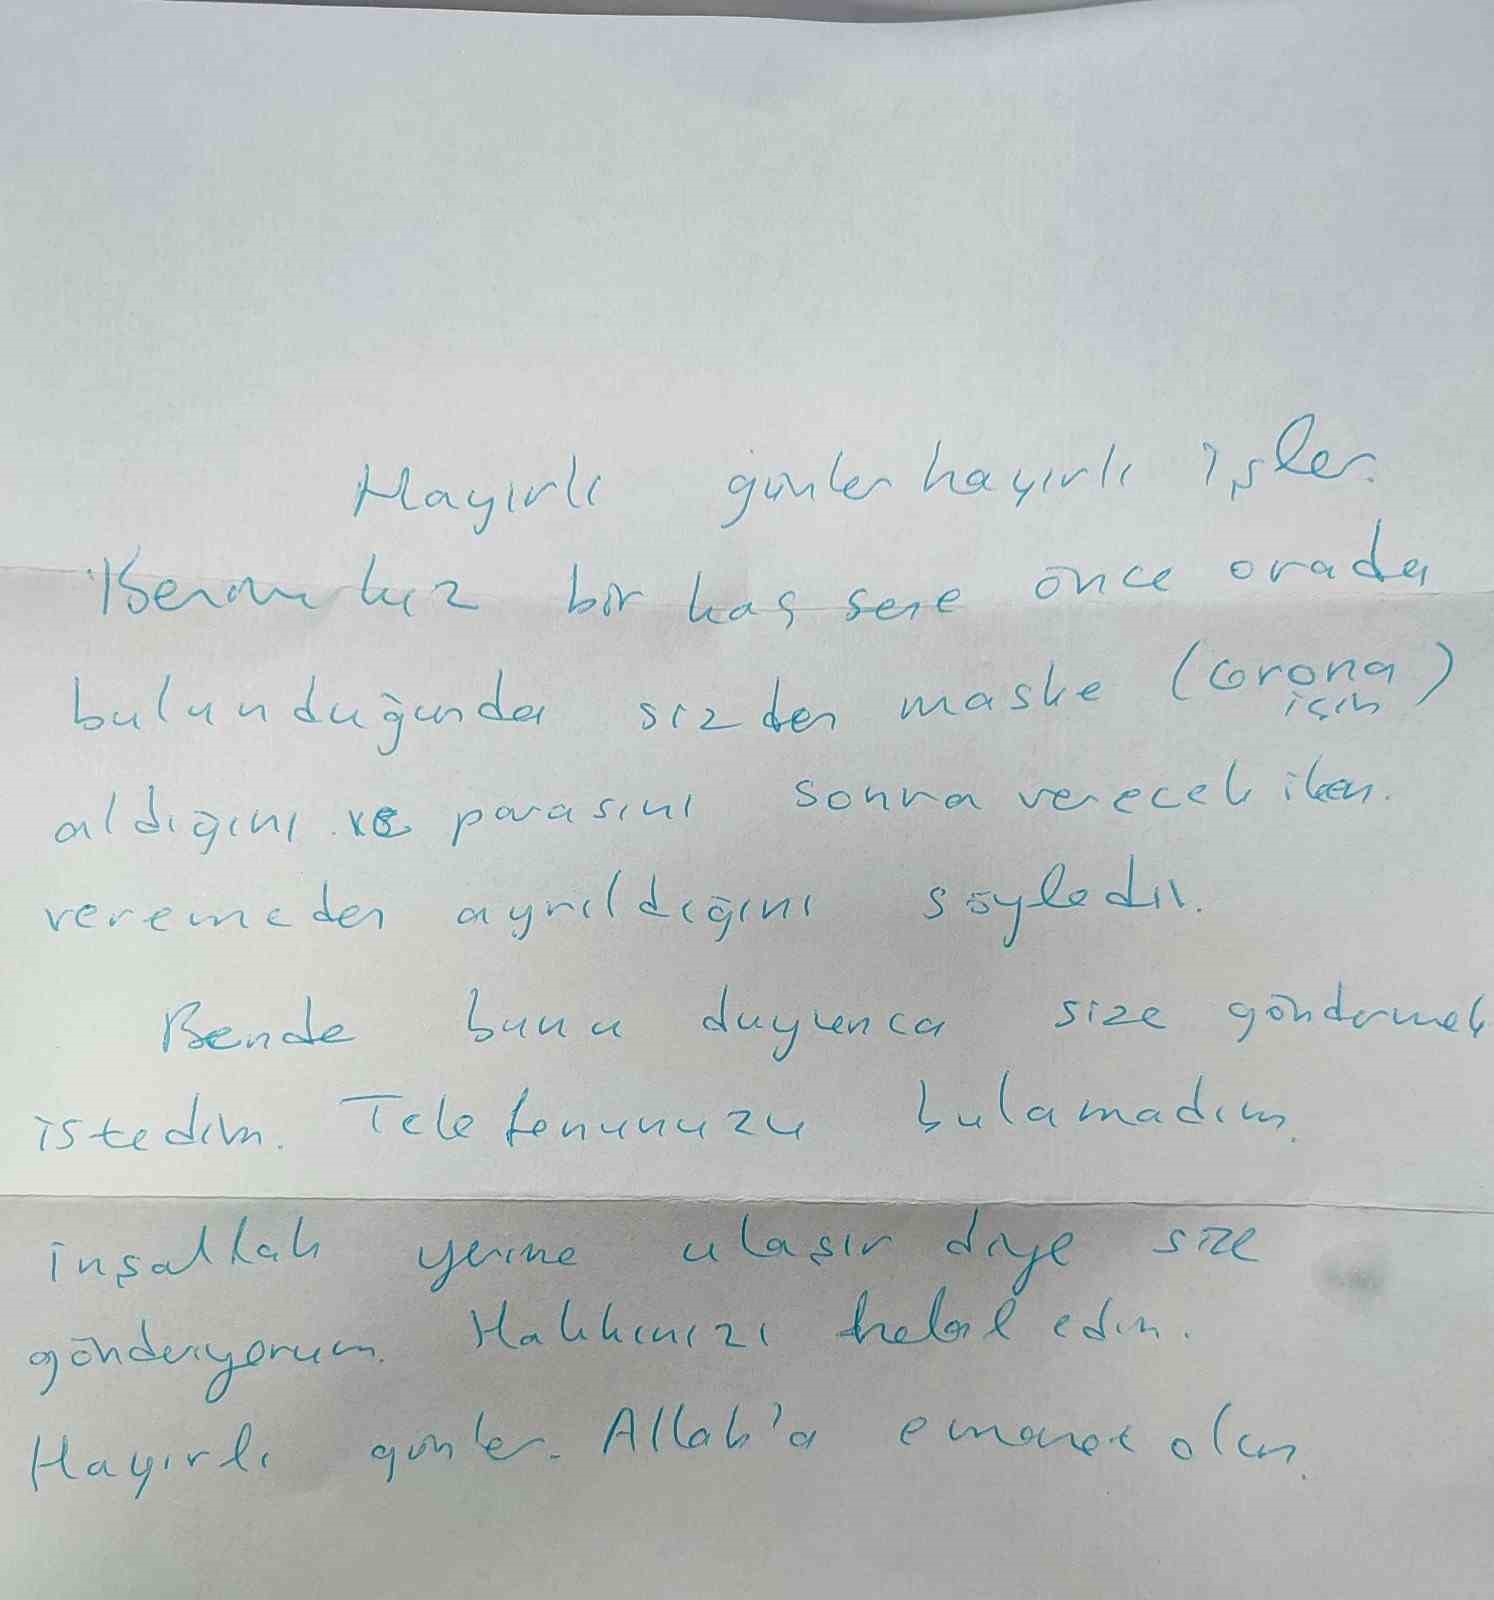 Hayırlı günler hayırlı işler.
Benim kız bir kaç sene önce orada
bulunduğunda sizden maske (corona
için)
aldığını ve parasını sonra verecek iken.
veremeden ayrıldığını söyledi.
Bende bunu duyunca size göndermek
istedim. Telefonunuzu bulamadım.
inşallah yerine ulaşır diye size
gönderiyorum. Hakkınızı helal edin.
Hayırlı günler. Allah'a emanet olun.